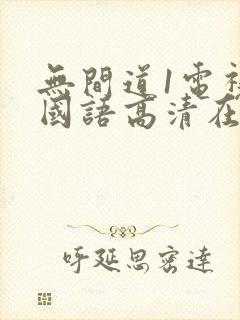 無間道1電視
國語高清在
呼延思密達